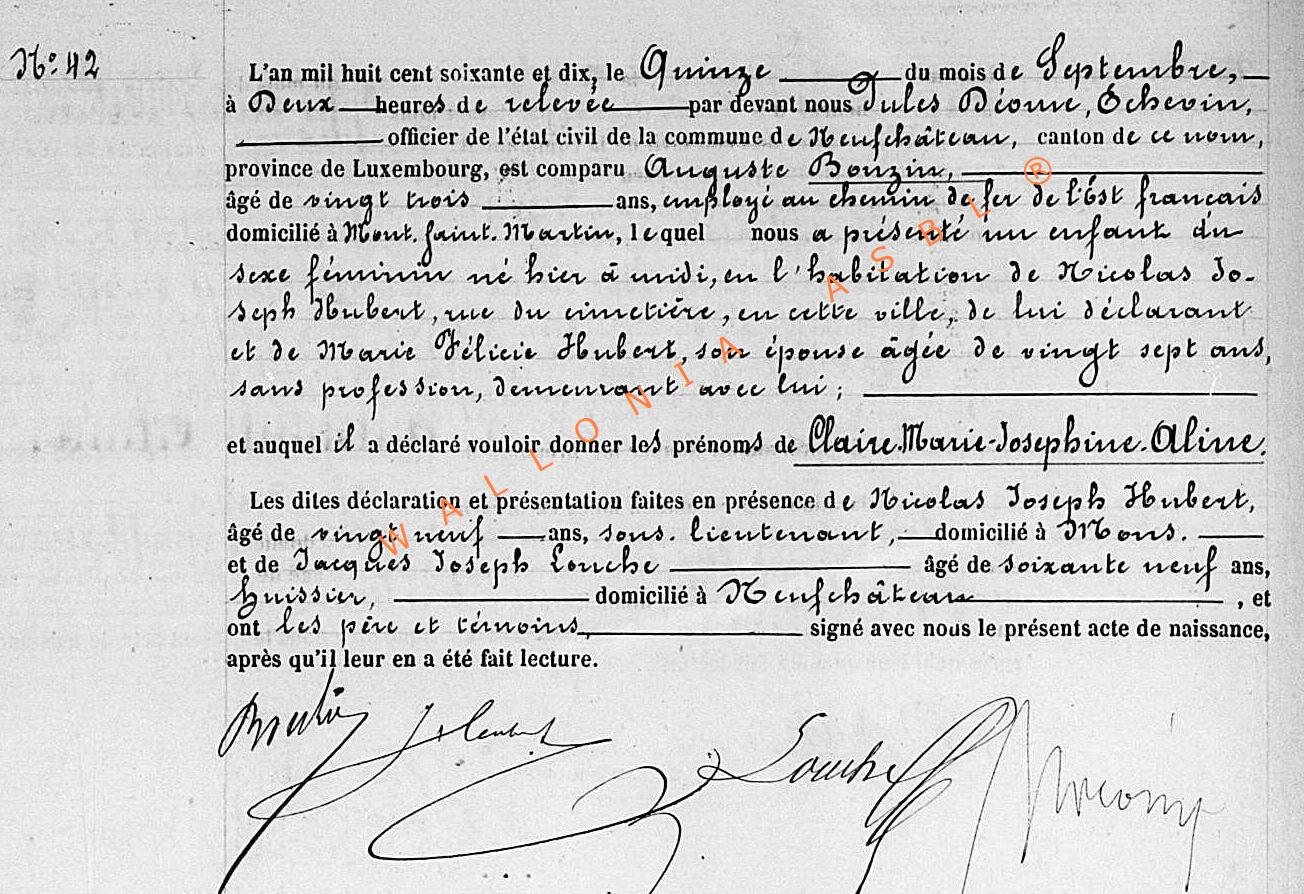 N° 42
L'an mil huit cent soixante et dix, le Quinze du mois de Septembre,
à Deux heures de relevée par devant nous Jules Déome, Echevin,
officier de l'état civil de la commune de Neufchâteau, canton de ce nom,
province de Luxembourg, est comparu Auguste Bouzin,
âgé de vingt trois ans, employé au chemin de fer de l'Est francais
domicilié à Mont. Saint. Martin, lequel nous a présenté un enfant du
sexe féminin né hier à midi, en l'habitation de Nicolas Jo-
seph Hubert, rue du cimetière, en cette ville, de lui déclarant
et de Marie Félicie Hubert, son épouse âgée de vingt sept ans,
sans profession, demeurant avec lui;
et auquel il a déclaré vouloir donner les prénoms de Claire-Marie-Josephine-Aline.
Les dites déclaration et présentation faites en présence de Nicolas Joseph Hubert,
âgé de vingt neuf ans, sous. lieutenant, domicilié à Mons.
et de Jacques Joseph Louche âgé de soixante neuf ans,
huissier, domicilié à Neufchâteau, et
ont les père et témoins, signé avec nous le présent acte de naissance,
après qu'il leur en a été fait lecture.
Louche
WALLONIA ASBL ®